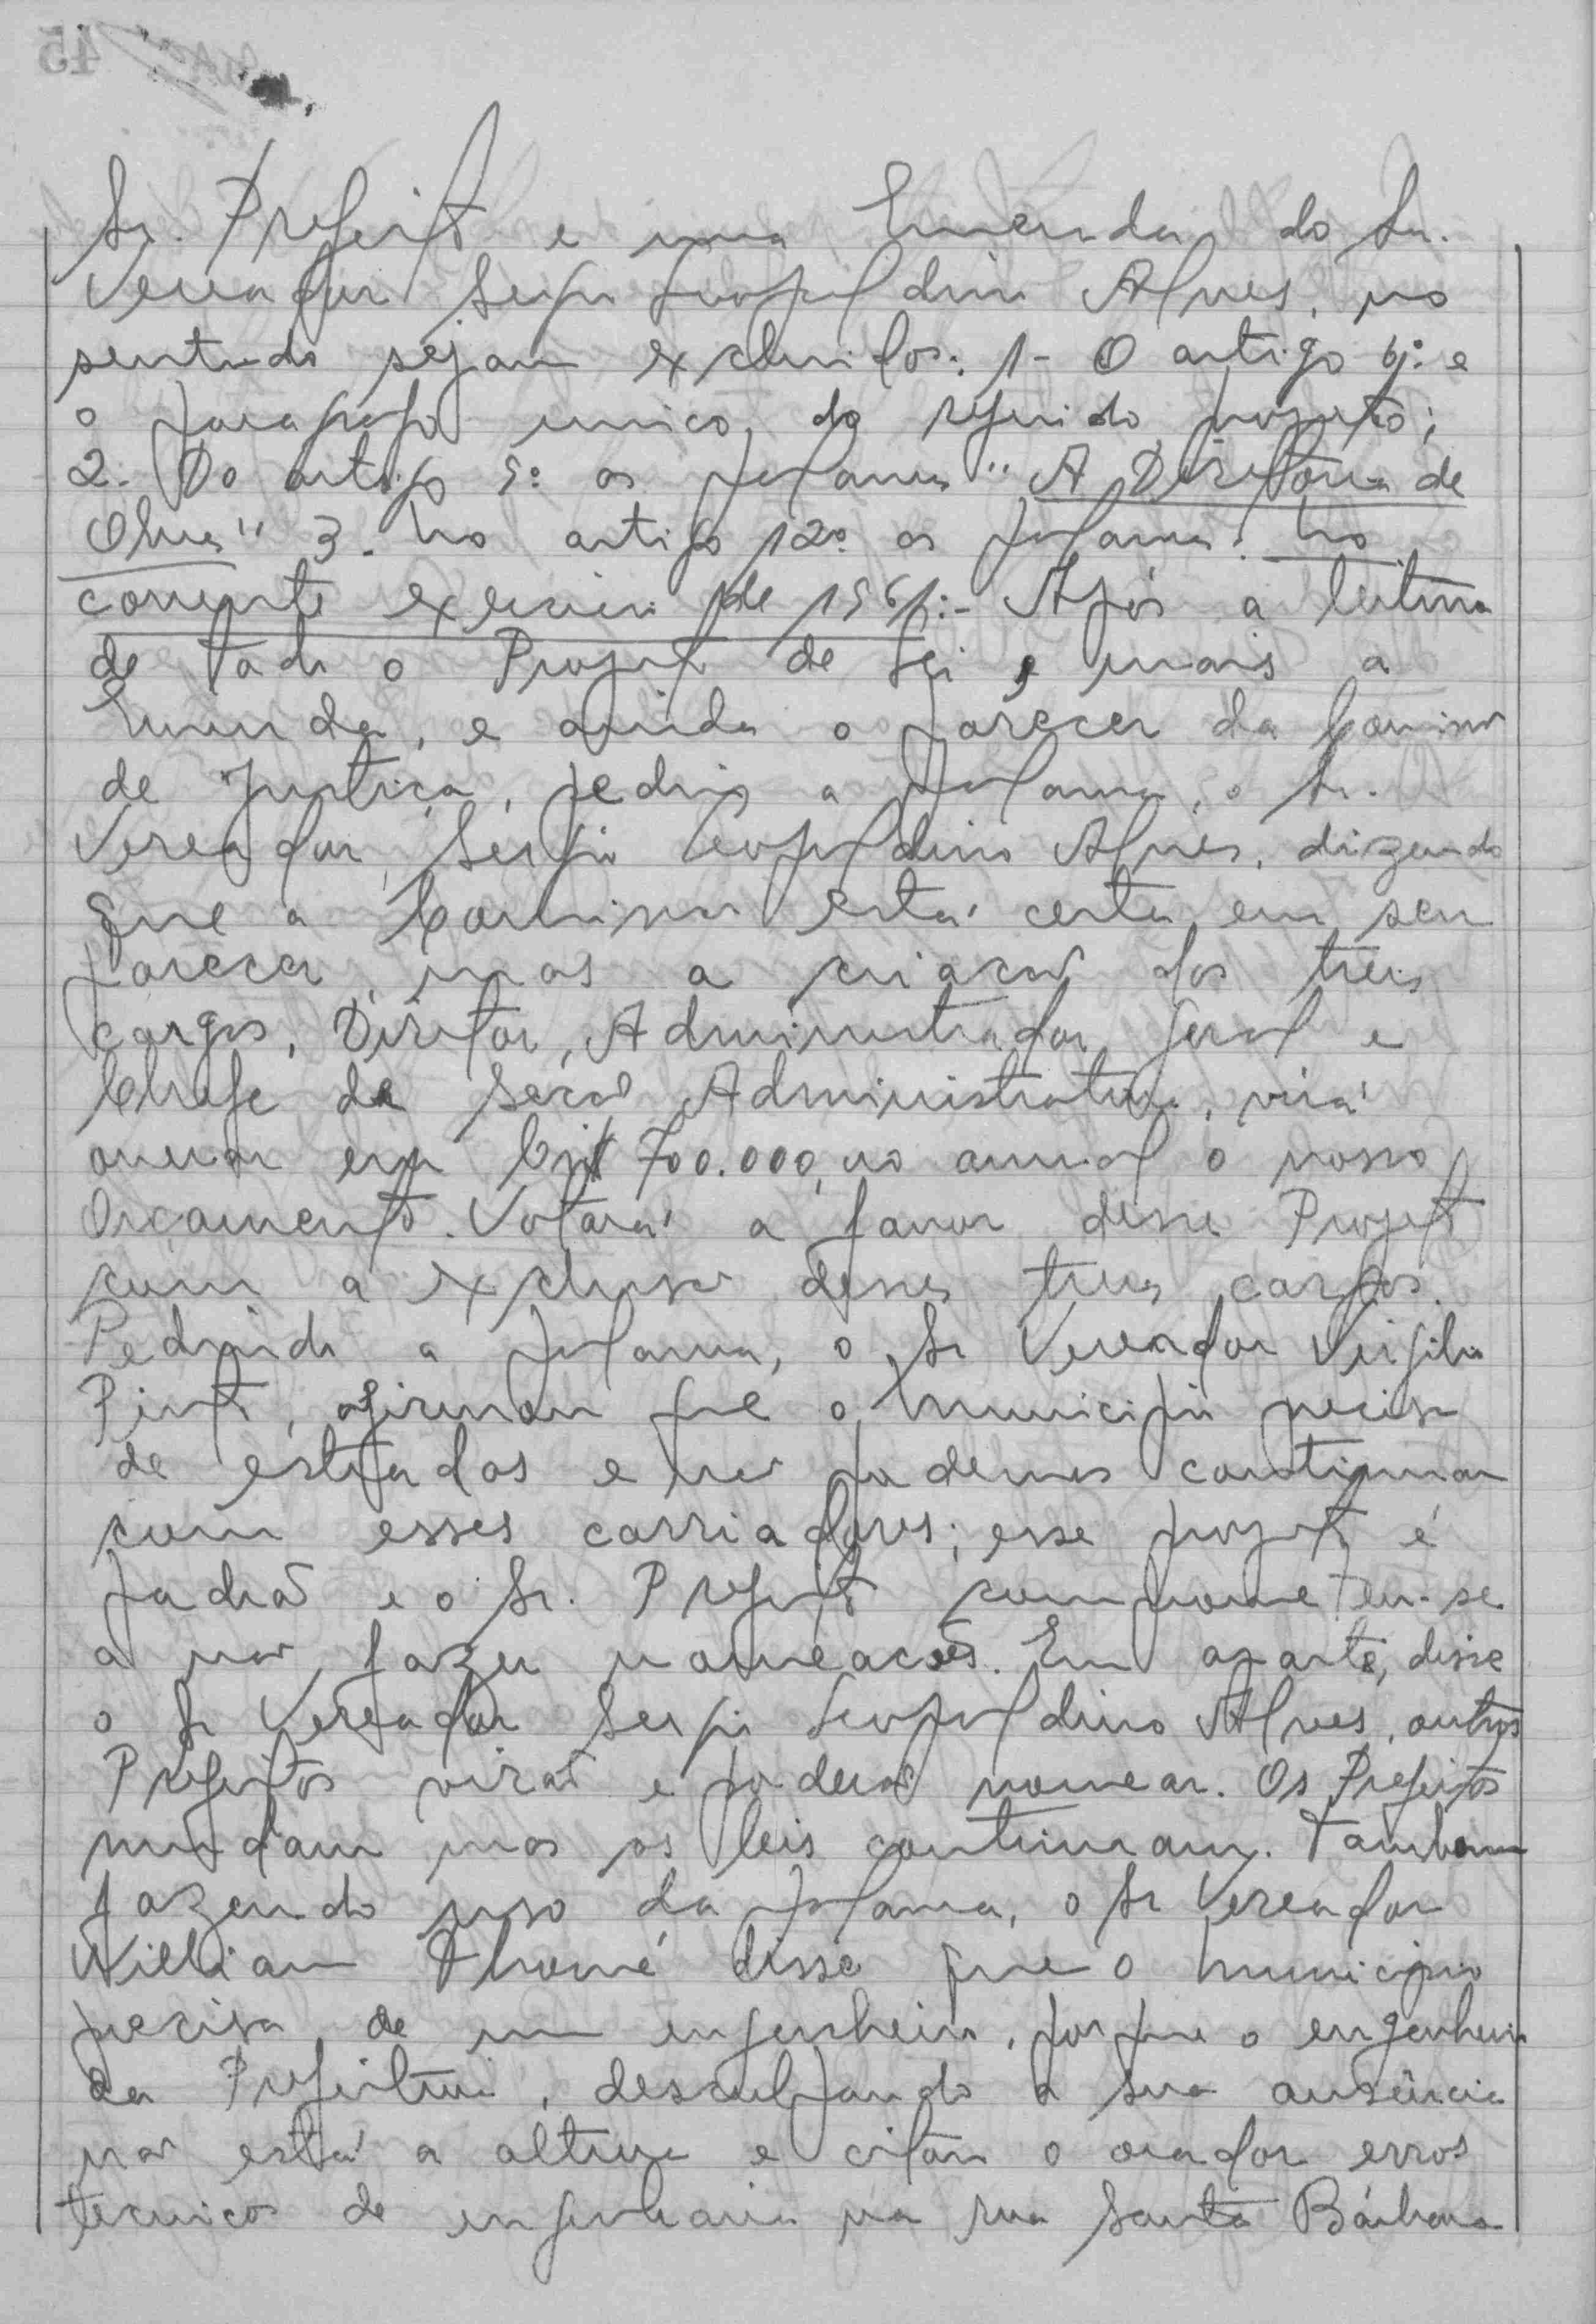 Sr. Prefeito e uma Emenda do Sr.
Vereador Sergio Leopoldino Alves, no
sentido sejam excluidos: 1- O artigo 6º e
o paragrafo unico, do referido projeto;
2. Do artigo 5º as palavras "A Diretoria de
Obras" 3- No artigo 12º as palavras: no
corrente exercicio de 1961:- Após a leitura
de todo o Projeto de Lei, e mais a
Emenda, e ainda o parecer da Comissão
de Justiça, pediu a palavra, o Sr.
Vereador, Sérgio Leopoldino Alves, dizendo
que a Comissão está certa em seu
parecer, mas a criação dos tres
cargos, Diretor, Administrador Geral e
Chefe da Seção Administrativa, virá
onerar em Cr$ 700.000,00 anual o nosso
Orçamento. Votará a favor desse Projeto
com a exclusão desses tres cargos.
Pedindo a palavra, o Sr Vereador Virgilio
Pinto, afirmou que o Municipio precisa
de estradas e não podemos continuar
com esses carriadores; esse projeto é
padrão e o Sr. Prefeito comprometeu-se
a não fazer nomeacões. Em aparte, disse
o Sr Vereador Sergio Leopoldino Alves, outros
Prefeitos virão e poderão nomear. Os Prefeitos
mudam mas as leis continuam. Tambem
fazendo uso da palavra, o Sr Vereador
William Thomé disse que o Municipio
precisa de um engenheiro, porque o engenheiro
da Prefeitura, desculpando a sua ausência
não está a altura e citou o orador erros
tecnicos de engenharia na rua Santa Bárbara